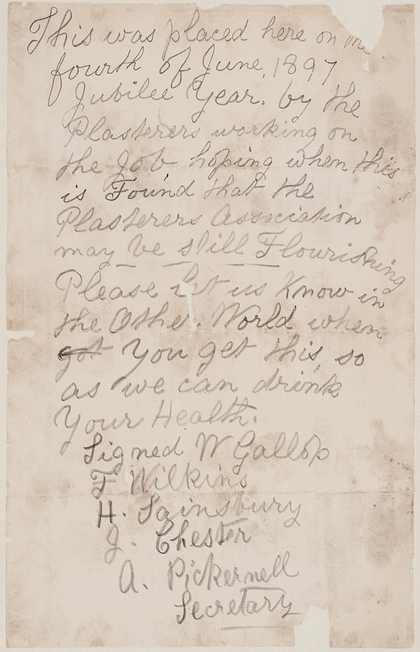 This was placed here on the
fourth of June, 1897
Jubilee Year. by the
Plasterers working on
the Job hoping when this
is Found that the
Plasterers Association
may be still Flourishing
Please Let us Know in
the Othe. World when
got You get this, so
as we can drink
Your Health.
Signed W Gallop
F Wilkins
H. Sainsbury
J. Chester
A. Pickernell
Secretary